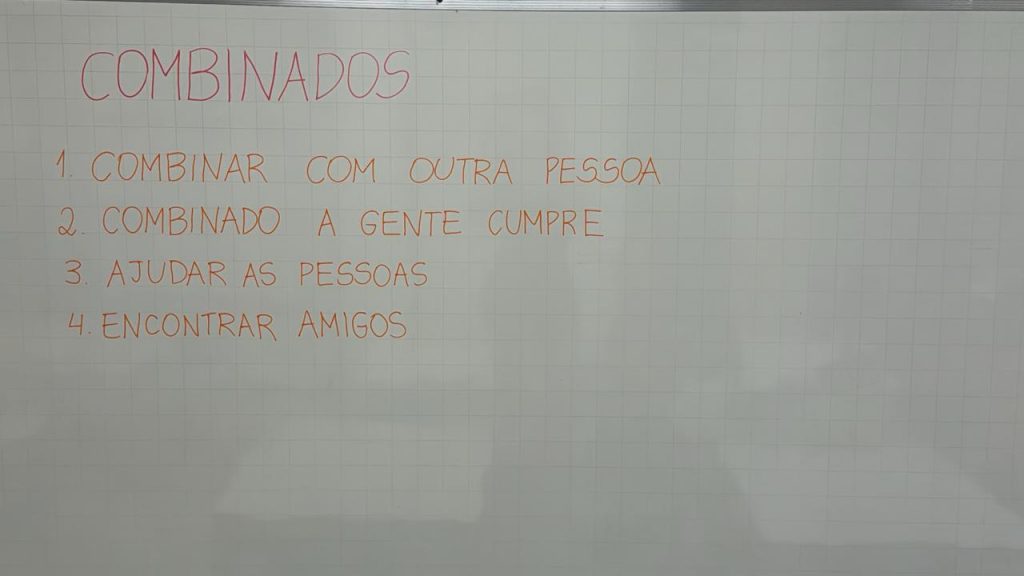 COMBINADOS
1. COMBINAR COM OUTRA PESSOA
2. COMBINADO A GENTE CUMPRE
3. AJUDAR AS PESSOAS
4. ENCONTRAR AMIGOS